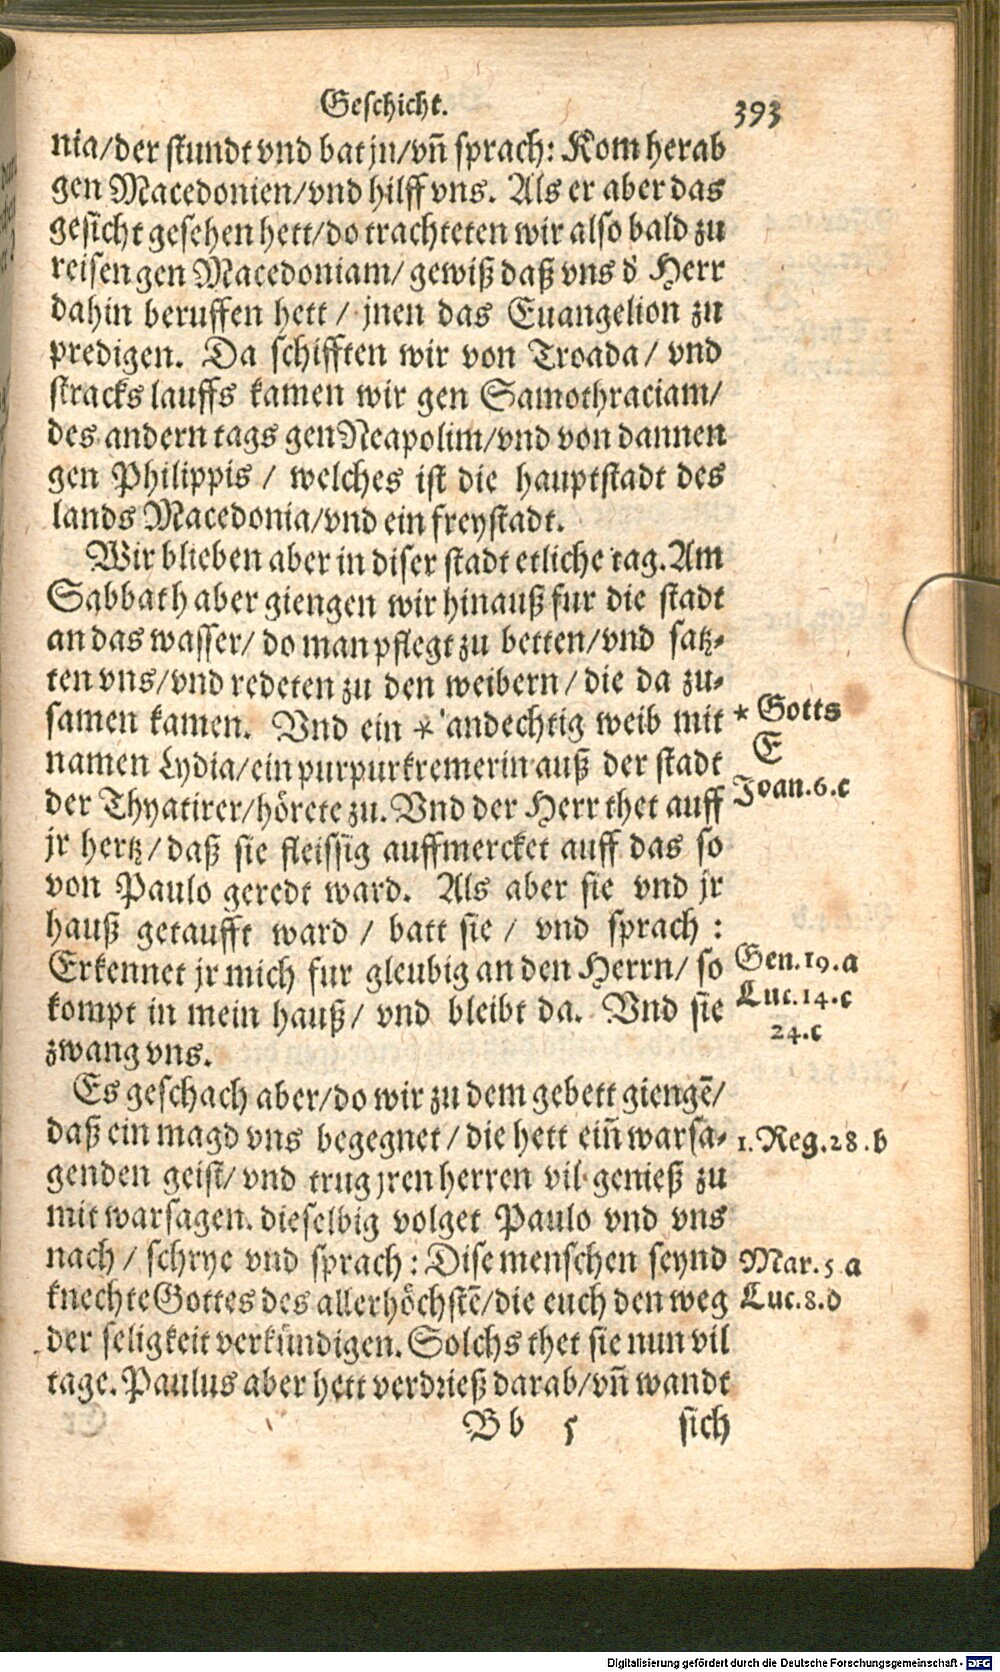 Geschicht. 393
nia/der stundt vnd bat jn/vn̄ sprach: Kom herab
gen Macedonien/vnd hilff vns. Als er aber das
gesicht gesehen hett/do trachteten wir also bald zu
reisen gen Macedoniam/ gewiß daß vns d̕ Herr
dahin beruffen hett / jnen das Euangelion zu
predigen. Da schifften wir von Troada/ vnd
stracks lauffs kamen wir gen Samothraciam/
des andern tags gen Neapolim/vnd von dannen
gen Philippis / welches ist die hauptstadt des
lands Macedonia/vnd ein freystadt.
Wir blieben aber in diser stadt etliche tag. Am
Sabbath aber giengen wir hinauß fur die stadt
an das wasser/ do man pflegt zu betten/vnd satz-
ten vns/vnd redeten zu den weibern/ die da zu-
samen kamen. Vnd ein * andechtig weib mit
* Gotts
namen Lydia/ein purpurkremerin auß der stadt
E
der Thyatirer/hörete zu. Vnd der Herr thet auff
Joan.6.c
jr hertz/ daß sie fleissig auffmercket auff das so
von Paulo geredt ward. Als aber sie vnd jr
hauß getaufft ward / batt sie / vnd sprach :
Erkennet jr mich fur gleubig an den Herrn/ so
Gen.19.a
kompt in mein hauß/ vnd bleibt da. Vnd sie
Luc.14.c
24.c
zwang vns.
Es geschach aber/do wir zu dem gebett giengē/
daß ein magd vns begegnet/ die hett ein̄ warsa-
1.Reg.28.b
genden geist/ vnd trug jren herren vil genieß zu
mit warsagen. dieselbig volget Paulo vnd vns
nach / schrye vnd sprach: Dise menschen seynd
Mar.5.a
knechte Gottes des allerhöchstē/die euch den weg
Luc.8.d
der seligkeit verkündigen. Solchs thet sie nun vil
tage. Paulus aber hett verdrieß darab/vn̄ wandt
Bb 5 sich
Digitalisierung gefördert durch die Deutsche Forschungsgemeinschaft - DFG